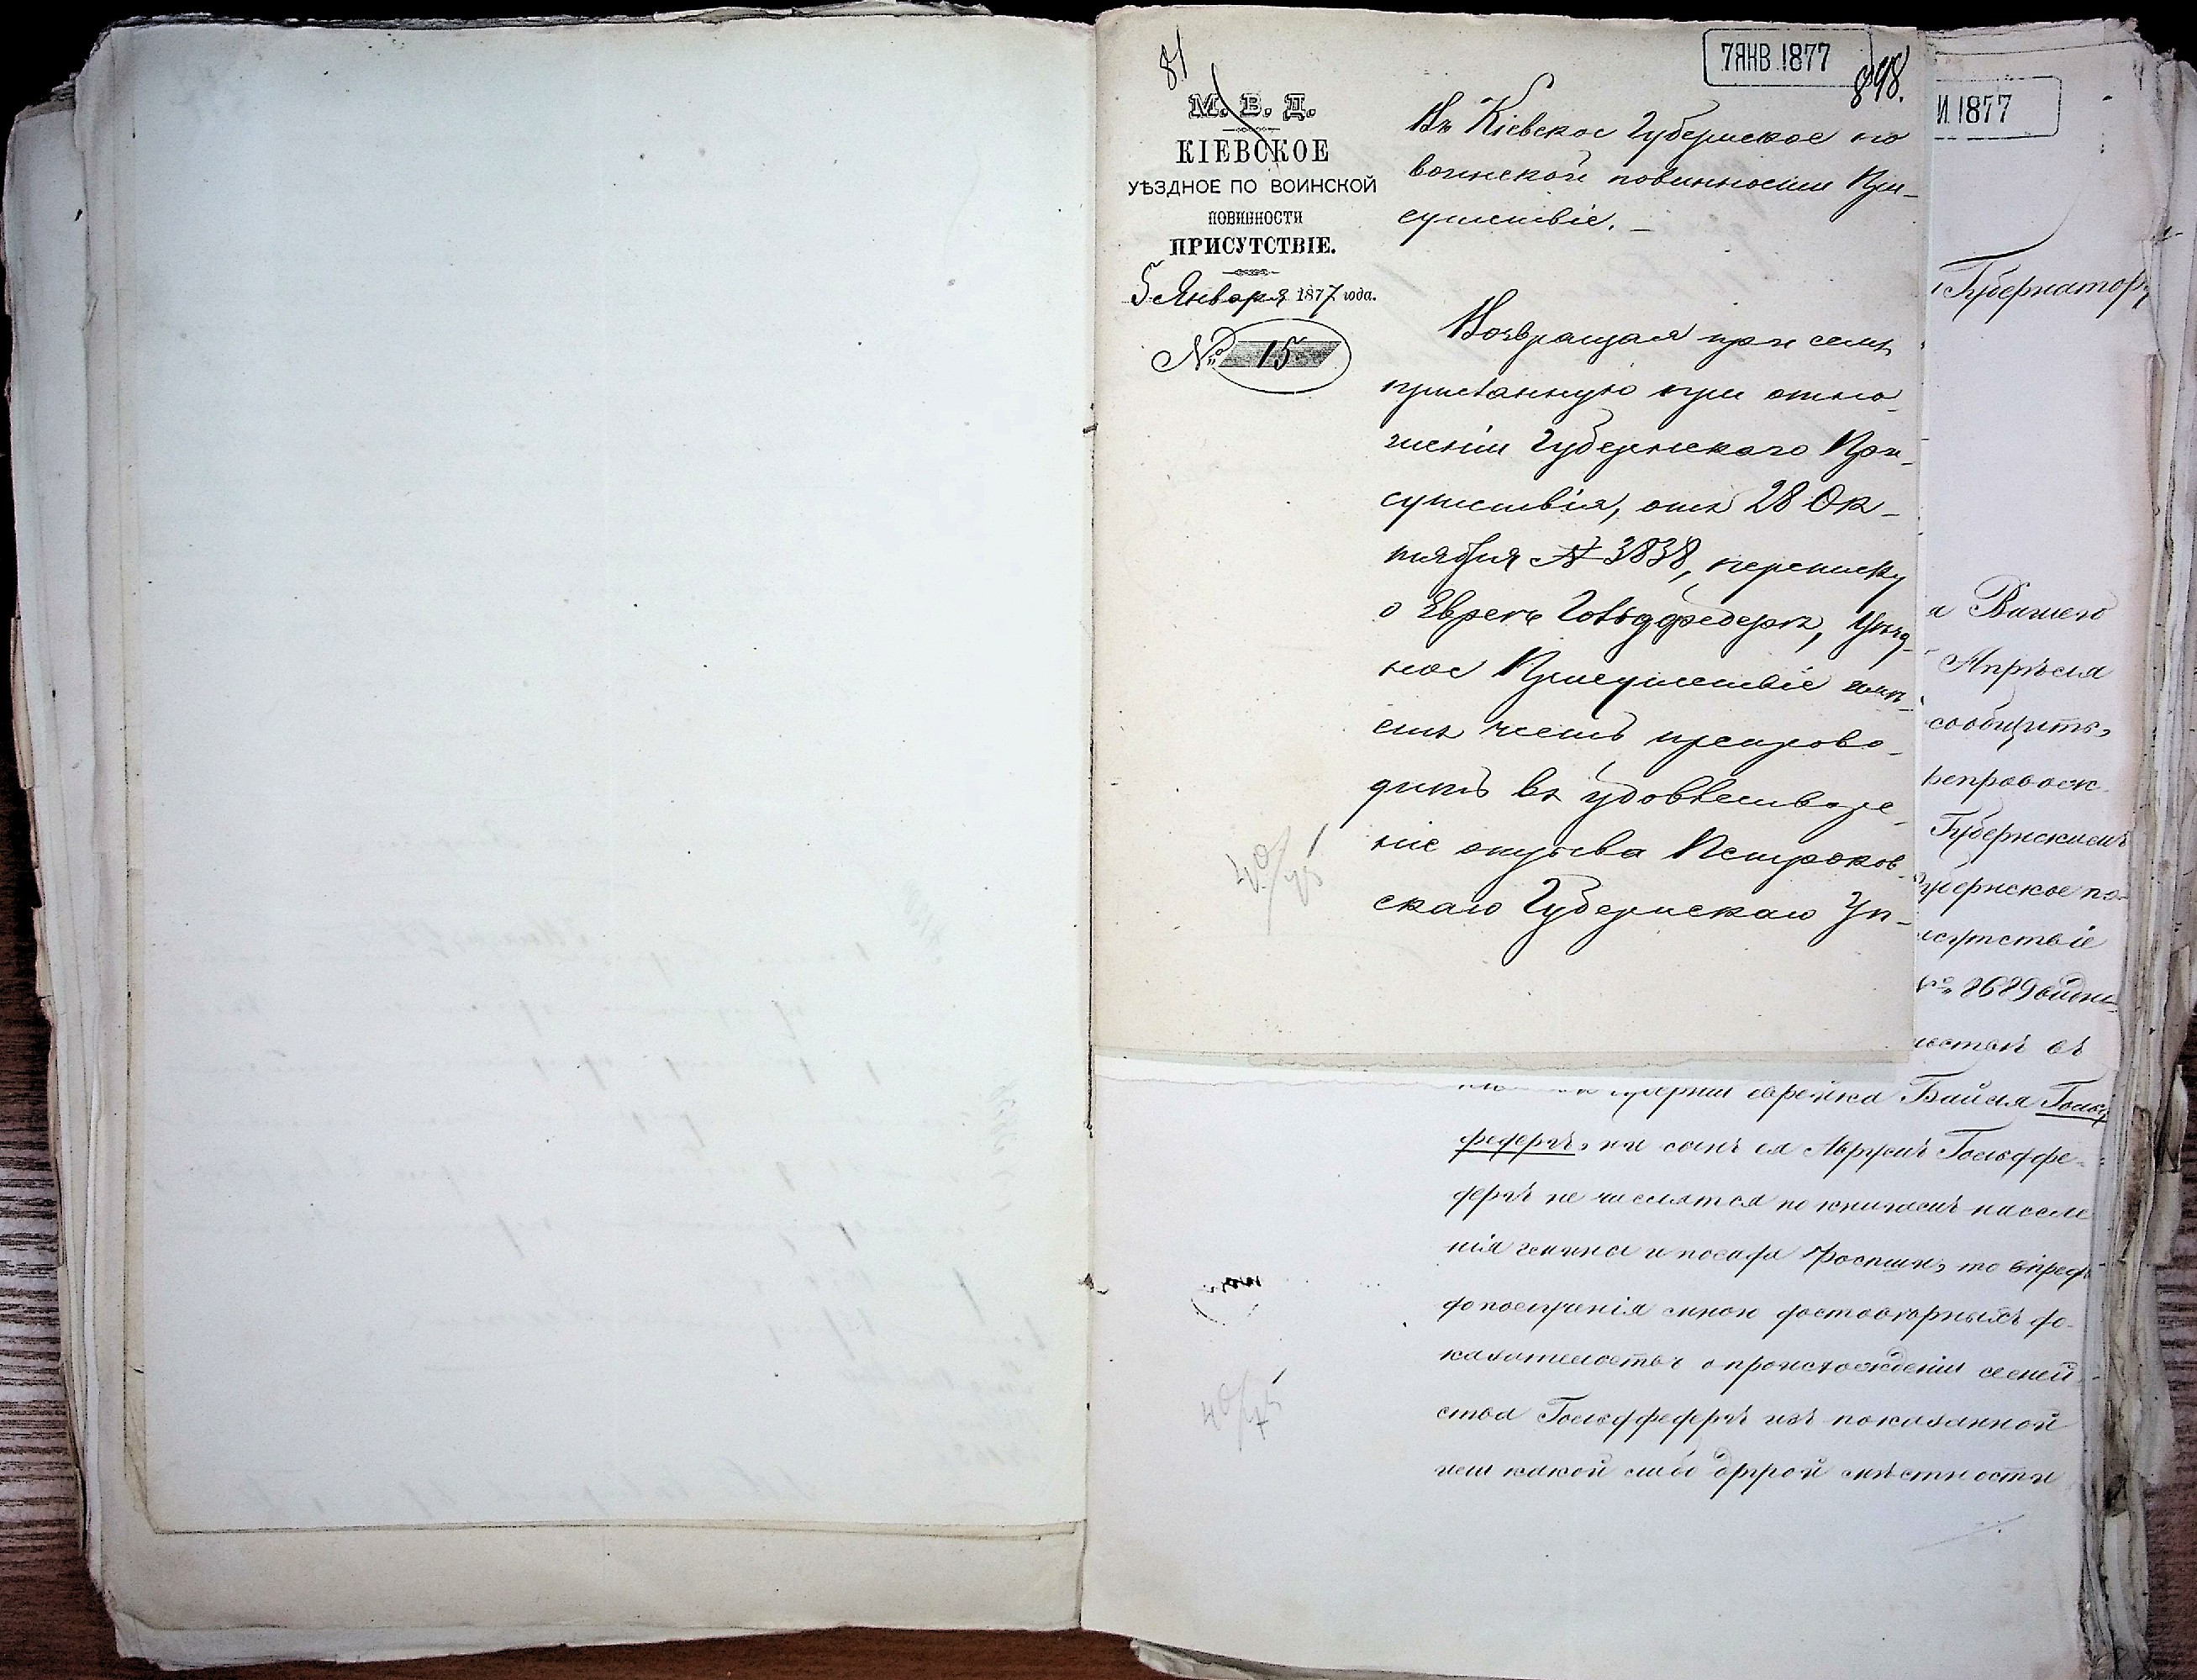 81
7 ЯНВ 1877
898.
М. В. Д.
КІЕВСКОЕ
УѢЗДНОЕ ПО ВОИНСКОЙ
ПОВИННОСТИ
ПРИСУТСТВІЕ.
5 Января 1877 года.
№ 15
Въ Кіевское Губернское по
воинской повинности При-
сутствіе.
Возвращая при семъ
присланную при отно-
шеніи Губернскаго При-
сутствія, отъ 28 Ок-
тября № 3838, переписку
о Евреѣ Гольдфедерѣ, Уѣзд-
ное Присутствіе имѣ-
етъ честь препрово-
дить въ удовлетворе-
ніе отзыва Петроков-
скаго Губернскаго Уп-
И 1877
Губернатор
а Вашего
Апрѣля
сообщить,
репровож
Губернскимъ
Губернское по
исутствіе
№ 8689
въ
губерніи еврейка Байля Гольд
федеръ, ни сынъ ея Аврумъ Гольдфе-
деръ не числятся по книгамъ населе
нія гмины и посада то впредь
до полученія мною достовѣрныхъ до-
казательствъ о происхожденіи семей
ства Гольдфедеръ изъ показанной
или какой либо другой мѣстности